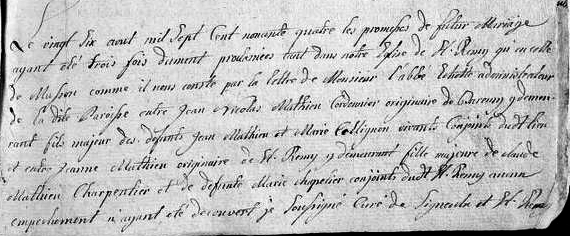 Le vingt Six aout mil Sept Cent nonante quatre les promesses de futur Mariage
ayant été trois fois dument proclamées tant dans notre Eglise de St. Remy qu'en celle
de Musson comme il nous conste par la lettre de Monsieur l'abbé administrateur
de la dite Paroisse entre Jean Nicolas Mathieu Cordonnier originaire de y demeu-
rant fils majeur des defunts Jean Mathieu et Marie Collignon vivants Conjoints dudt lieu
et entre Jeanne Mathieu originaire de St. Remy y demeurant fille majeure de Claude
Mathieu Charpentier et de defunte Marie chapelier conjoints dudt St. Remy aucun
empechement n'ayant été decouvert je Soussigné Curé de Signeulx et St. Remy